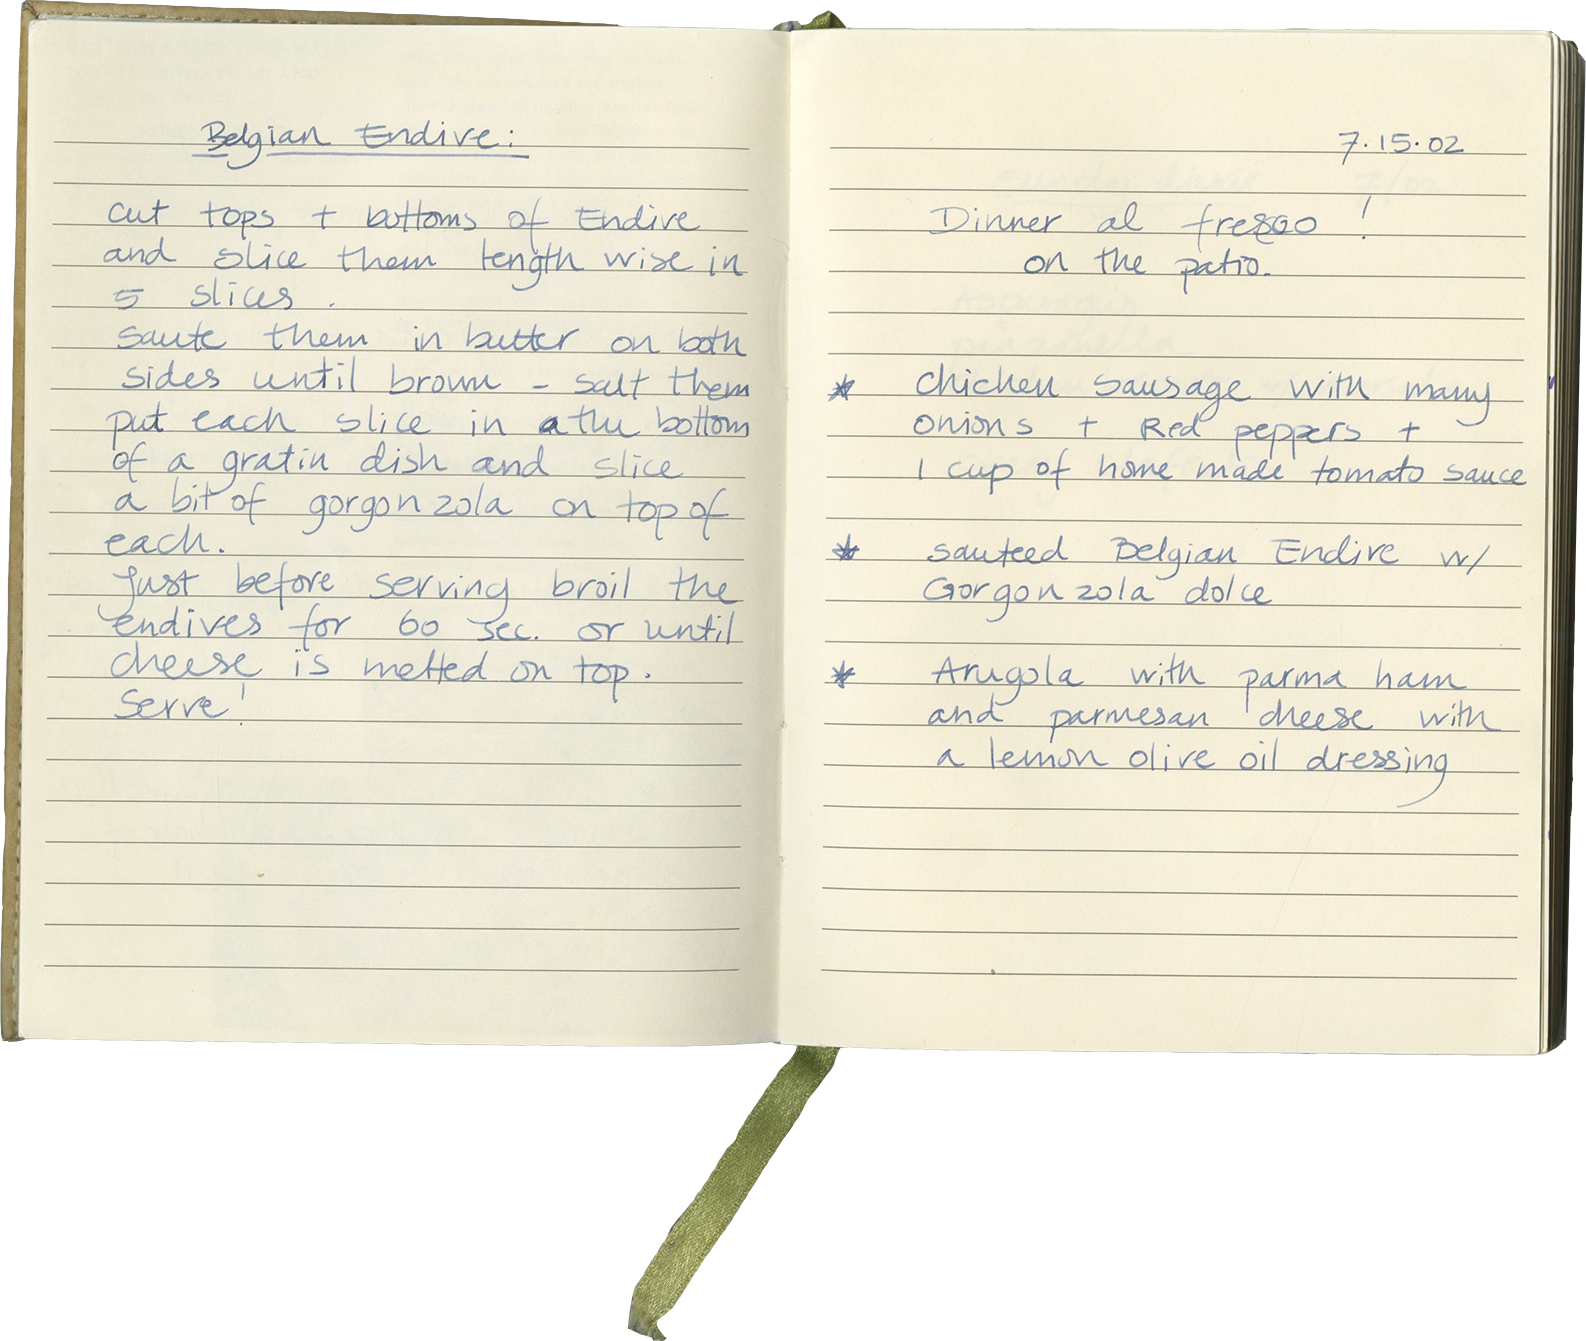 Belgian Endive:
cut tops + bottoms of Endive
and slice them length wise in
5 slices.
saute them in butter on both
sides until brown - salt them
put each slice in the bottom
of a gratin dish and slice
a bit of gorgonzola on top of
each.
Just before serving broil the
endives for 60 sec. or until
cheese is melted on top.
Serve!
7.15.02
Dinner al fresco!
on the patio.
* chicken sausage with many
onions + Red peppers +
1 cup of home made tomato sauce
* sauteed Belgian Endive w/
Gorgonzola dolce
* Arugola with parma ham
and parmesan cheese with
a lemon olive oil dressing